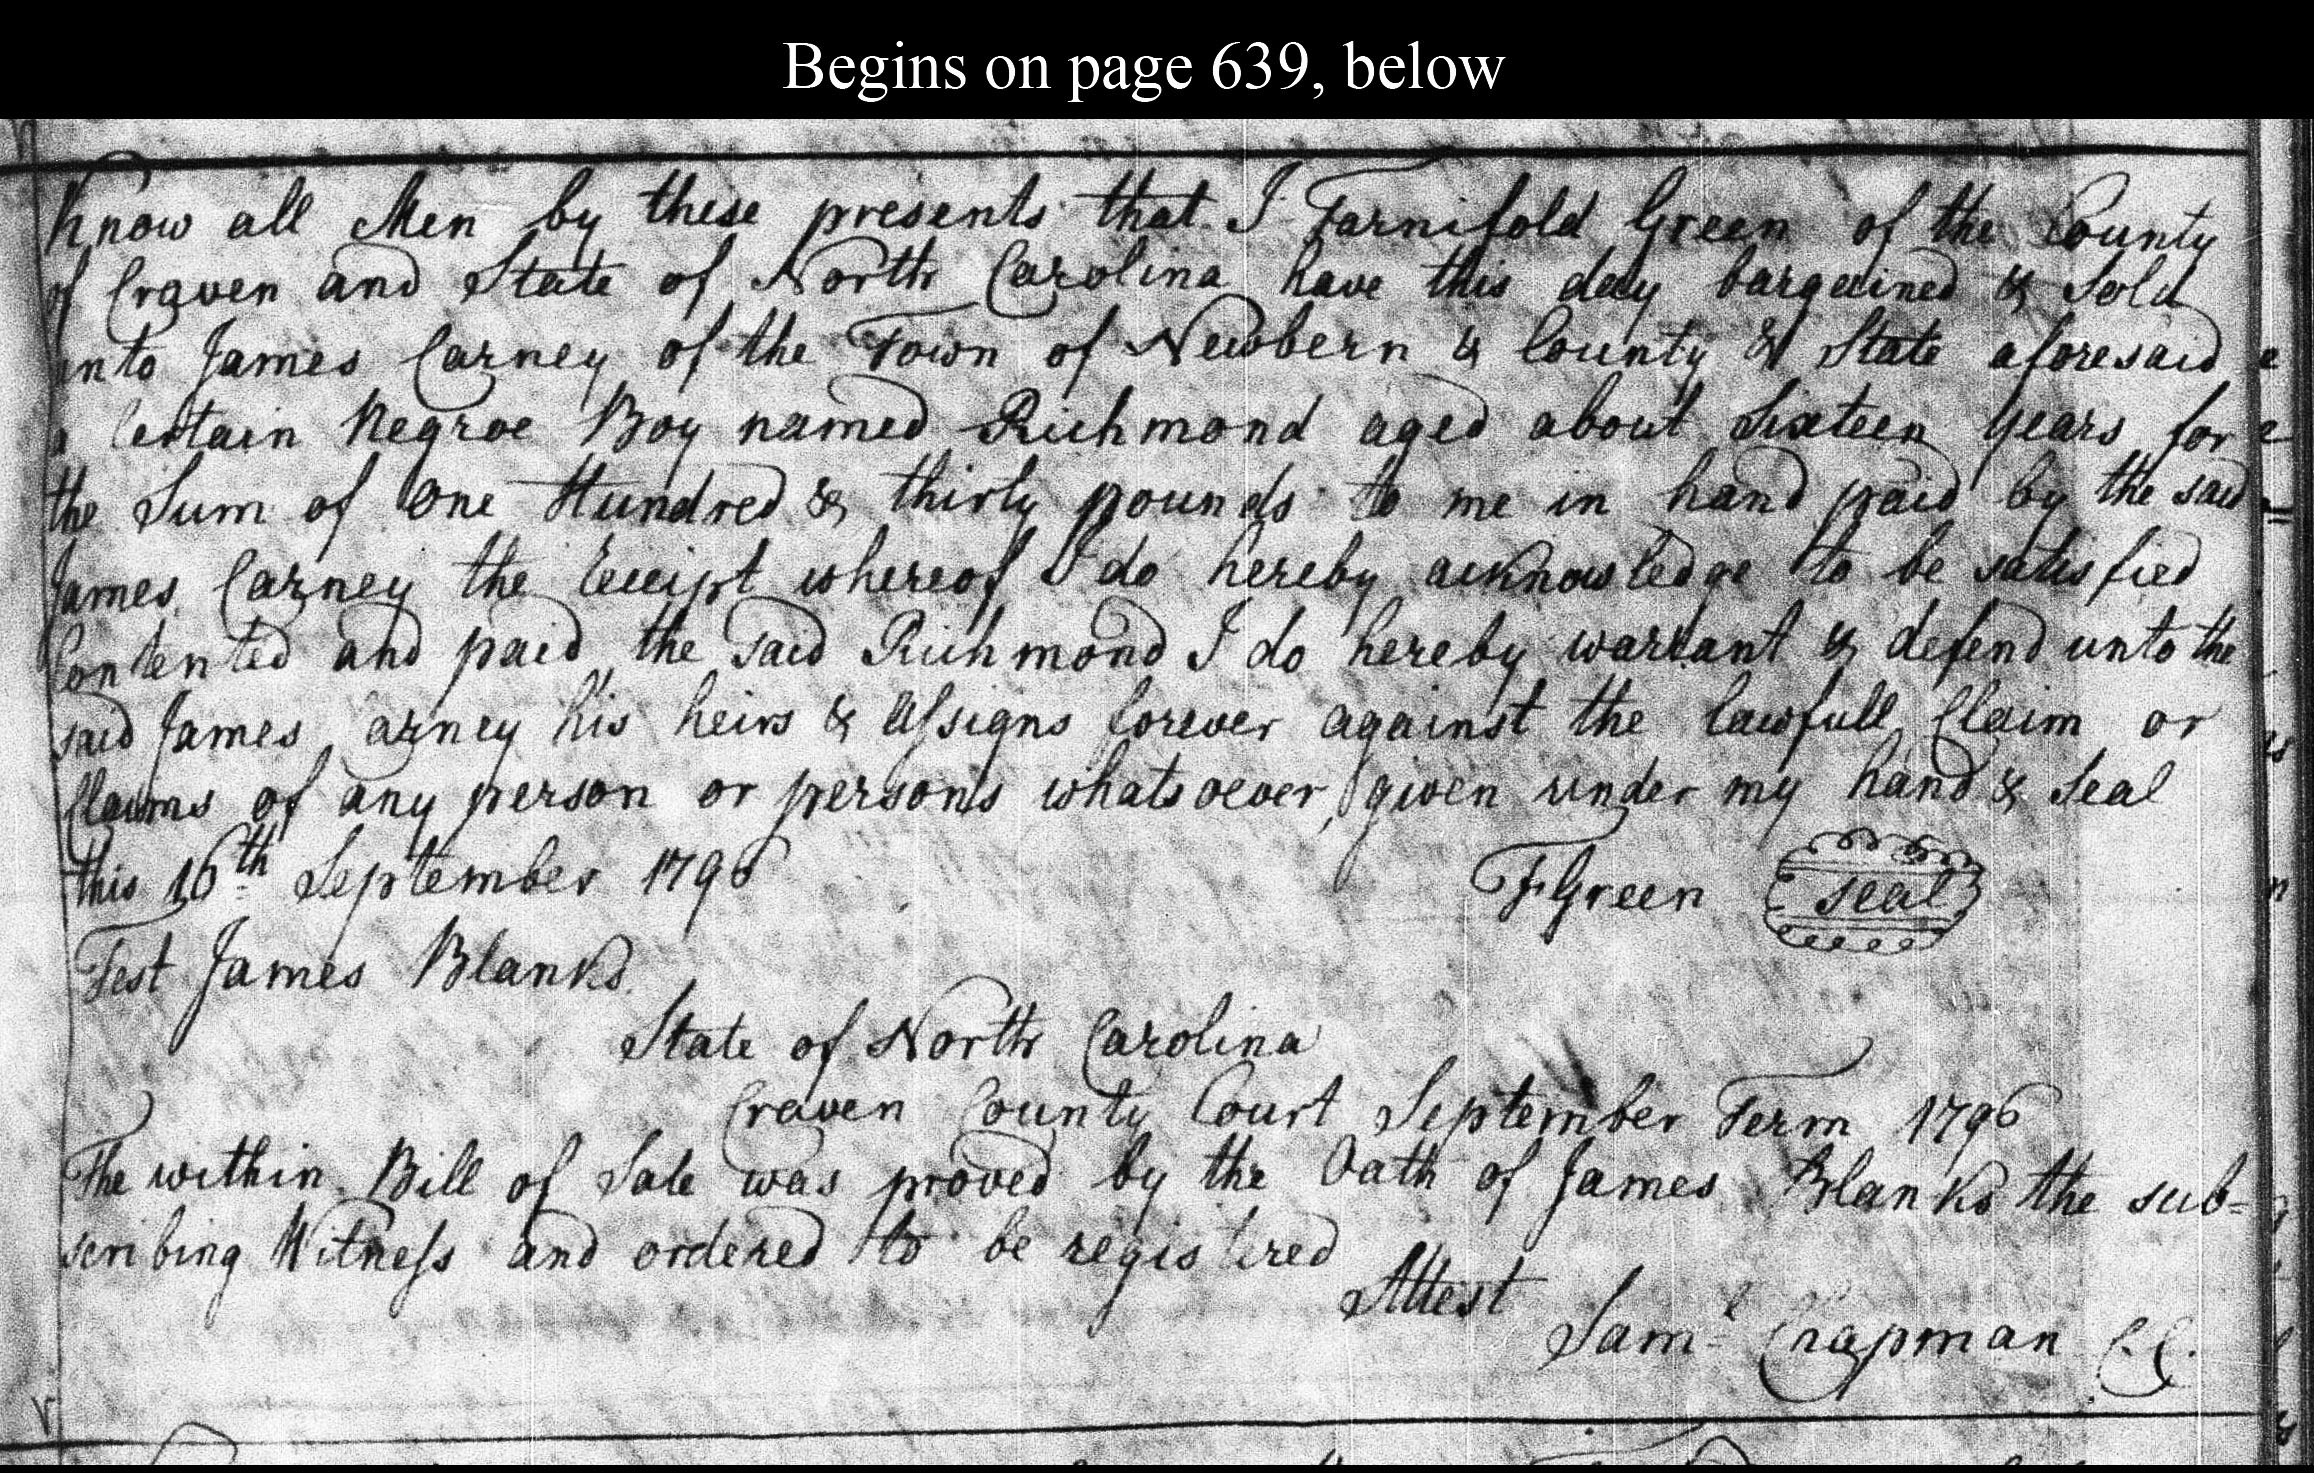 Begins on page 639, below
Know all Men by these presents that I Farnifold Green of the County
of Craven and State of North Carolina have this day bargained & Sold
unto James Carney of the Town of Newbern & County & State aforesaid
a Certain Negroe Boy named Richmond aged about Sixteen Years for
the Sum of One Hundred & thirty pounds to me in hand paid by the said
James Carney the Receipt whereof I do hereby acknowledge to be satisfied
Contented and paid, the said Richmond I do hereby warrant & defend unto the
said James Carney his heirs & assigns forever against the lawfull Claim or
Claims of any person or persons whatsoever, given under my hand & Seal
this 16th September 1796
F Green seal
Test James Blanks
State of North Carolina
Craven County Court September Term 1796
The within Bill of Sale was proved by the Oath of James Blanks the sub=
scribing Witness and ordered to be registered
Attest
Saml Chapman C.C.